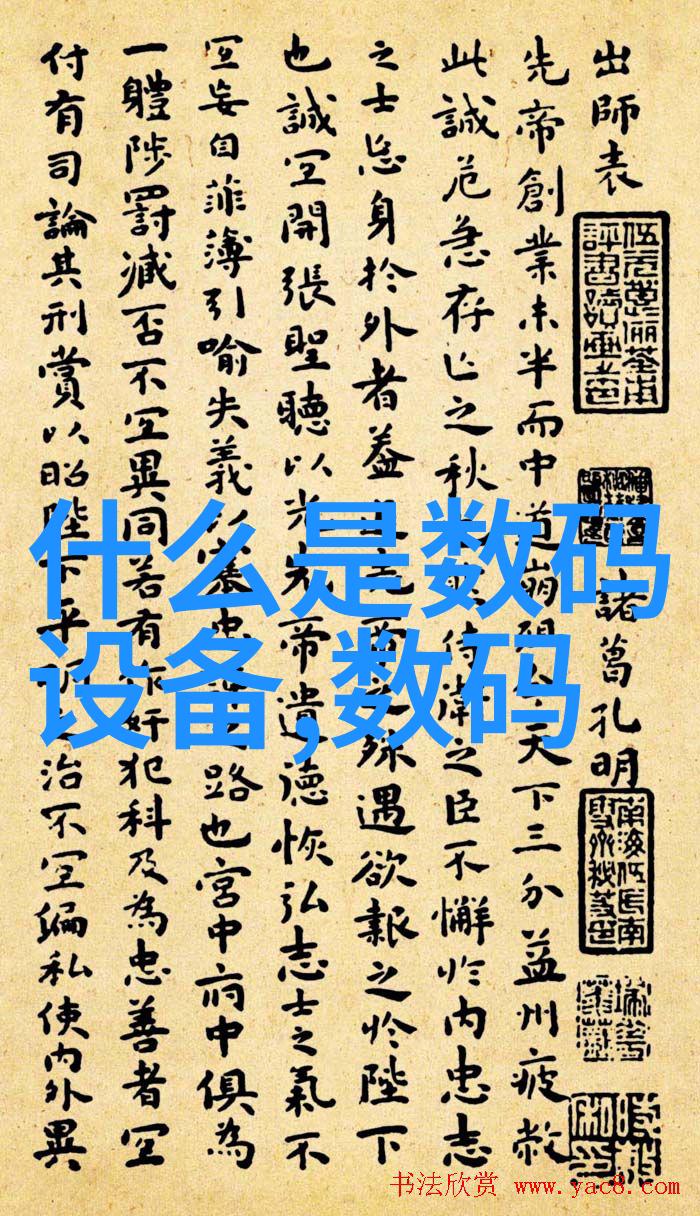 出師表
諸葛孔明
先帝創業未半而中道崩殂今天下三分益州疲敝
此誠危急存亡之秋也然侍衛之臣不懈於内忠志
之士忘身於外者蓋追先帝之殊遇欲報之於陛下
也誠宜開張聖聽以光先帝遺德恢弘志士之氣不
宜妄自菲薄引喻失義以塞忠諫之路也宮中府中俱為
一體陟罰臧否不宜異同若有作奸犯科及為忠善者宜
付有司論其刑賞以昭陛下平明之治不宜偏私使内外異
什么是数码
设备,数码
书法欣赏 www.yac8.com